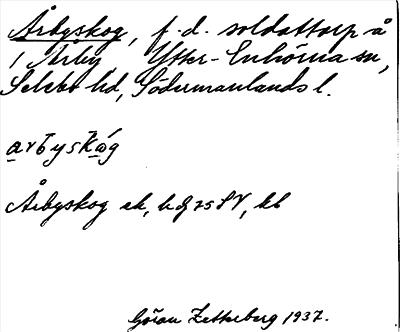 Årbyskog, f.d. soldattorp å
1 Årby, Ytter-Enhörna sn,
Selebo hd, Södermanlands l.
Årbyskog ek,
Göran Zetterberg 1937.